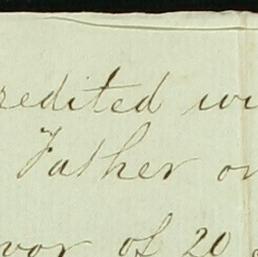 redited wi
Father or
vor of 20